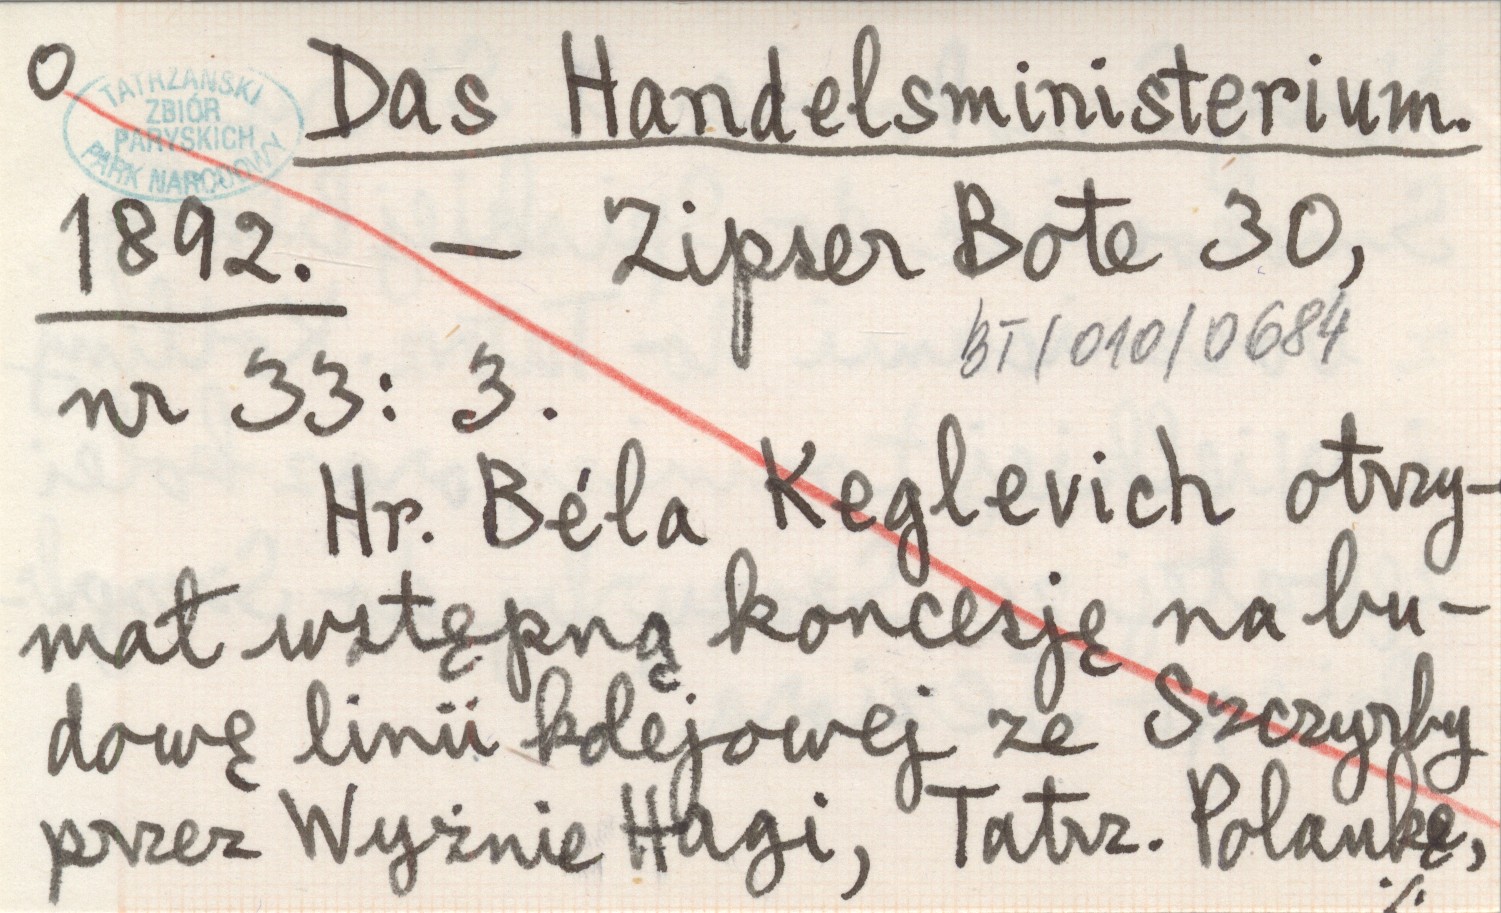 O Das Handelsministerium.
TATRZAŃSKI
ZBIÓR
PARYSKICH
PARK NARODOWY
1892. — Zipser Bote 30,
BT/010/0684
nr 33: 3.
Hr. Béla Keglevich otrzy-
mał wstępną koncesję na bu-
dowę linii kolejowej ze Szczyrby
przez Wyżnie Hagi, Tatrz. Polankę,
./.